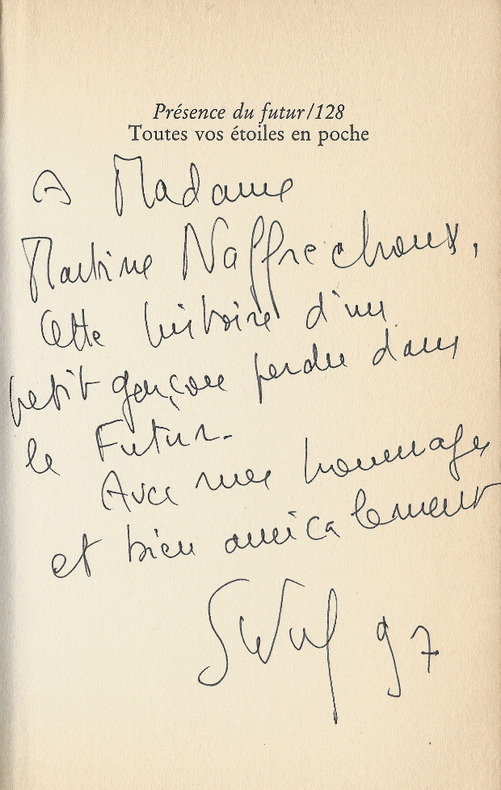 Présence du futur/128
Toutes vos étoiles en poche
A Madame
Martine Naffrechoux,
Cette histoire d'un
petit garçon perdu dans
le Futur.
Avec mes hommages
et bien amicalement
SWul 97